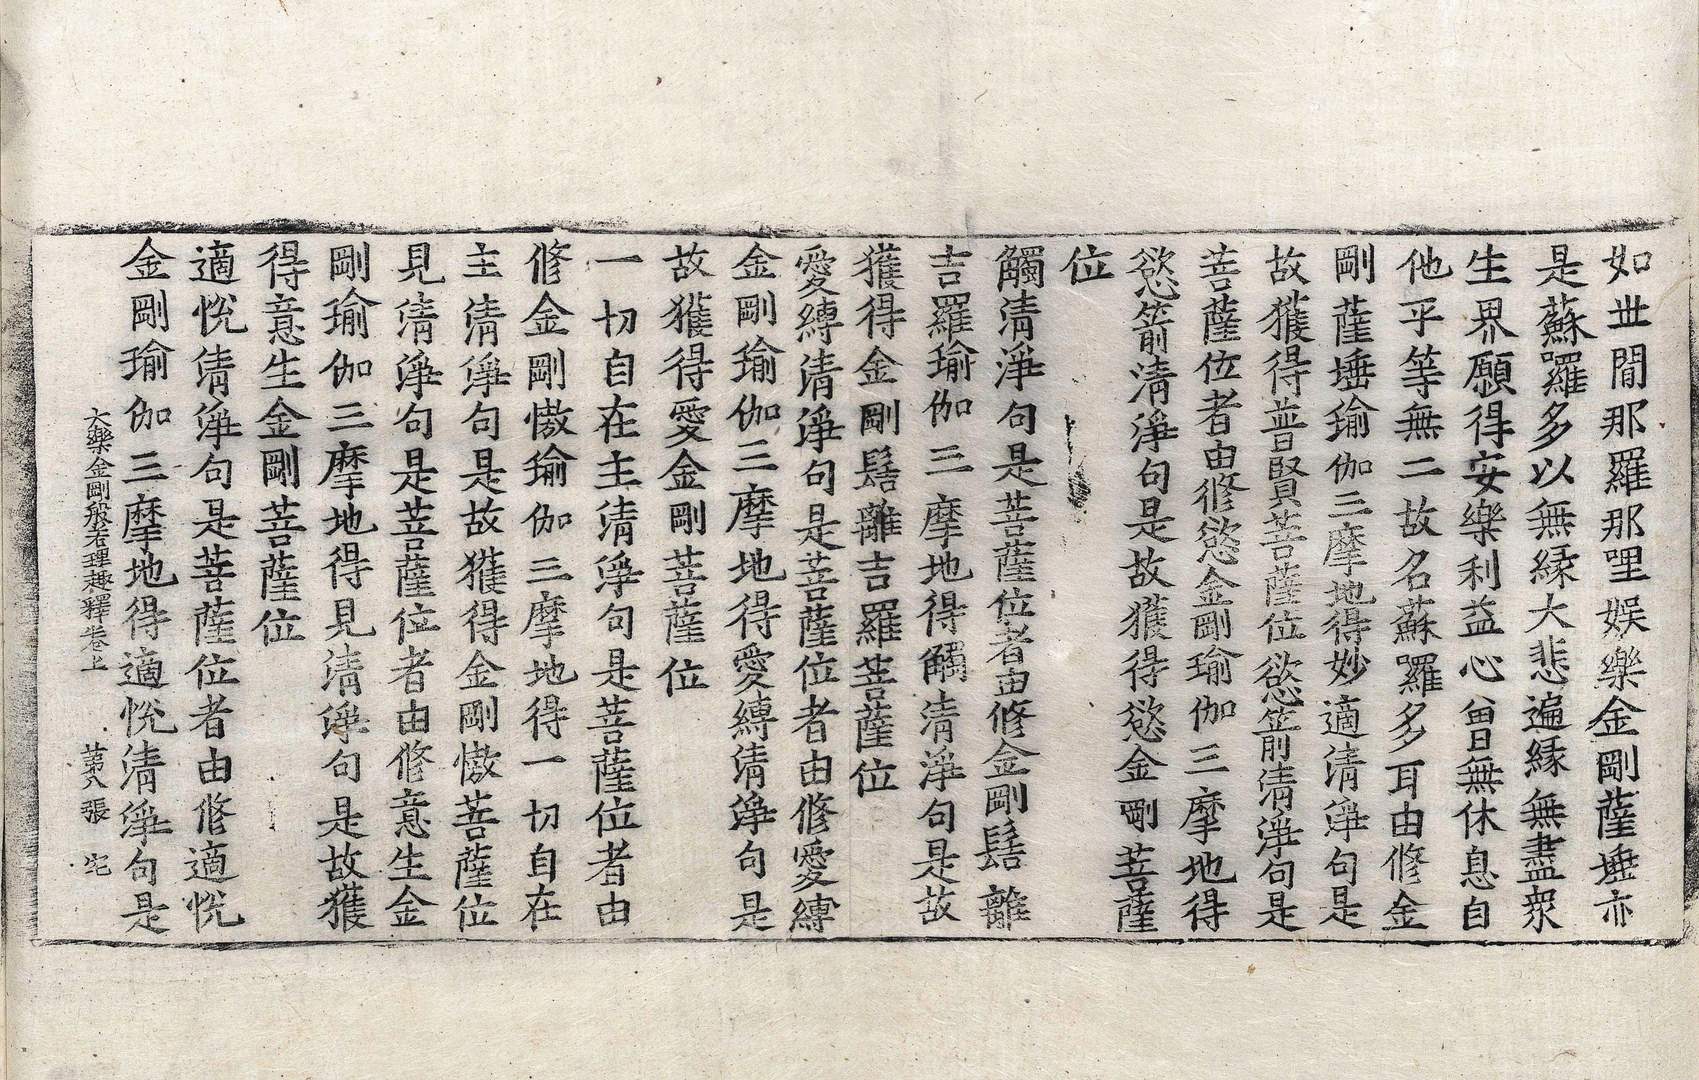 如世間那羅那哩娛樂金剛薩埵亦
是蘇囉多以無緣大悲遍緣無盡衆
生界願得安樂利益心曾無休息自
他平等無二故名蘇囉多耳由修金
剛薩埵瑜伽三摩地得妙適清淨句是
故獲得普賢菩薩位慾箭清淨句是
菩薩位者由修慾金剛瑜伽三摩地得
慾箭清淨句是故獲得慾金剛菩薩
位
觸清淨句是菩薩位者由修金剛髻離
吉羅瑜伽三摩地得觸清淨句是故
獲得金剛髻離吉羅菩薩位
愛縛清淨句是菩薩位者由修愛縛
金剛瑜伽三摩地得愛縛清淨句是
故獲得愛金剛菩薩位
一切自在主清淨句是菩薩位者由
修金剛慠瑜伽三摩地得一切自在
主清淨句是故獲得金剛慠菩薩位
見清淨句是菩薩位者由修意生金
剛瑜伽三摩地得見清淨句是故獲
得意生金剛菩薩位
適悅清淨句是菩薩位者由修適悅
金剛瑜伽三摩地得適悅清淨句是
大樂金剛般若理趣釋卷上 第八張